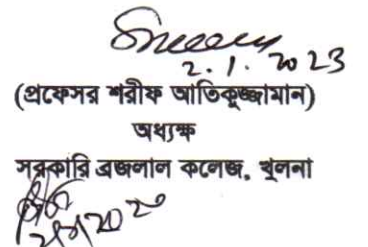 2.1.2023
(প্রফেসর শরীফ আতিকুজ্জামান)
অধ্যক্ষ
সরকারি ব্রজলাল কলেজ, খুলনা